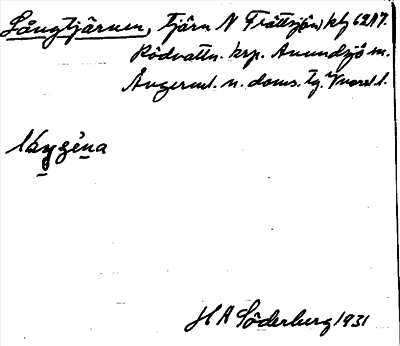 Långtjärnen, tjärn N Trättsjön, kbl 62A7.
Rödvattn. krp. Anundsjö sn.
Ångerml. n. doms. tg. Vnorrl l.
H A Söderberg 1931